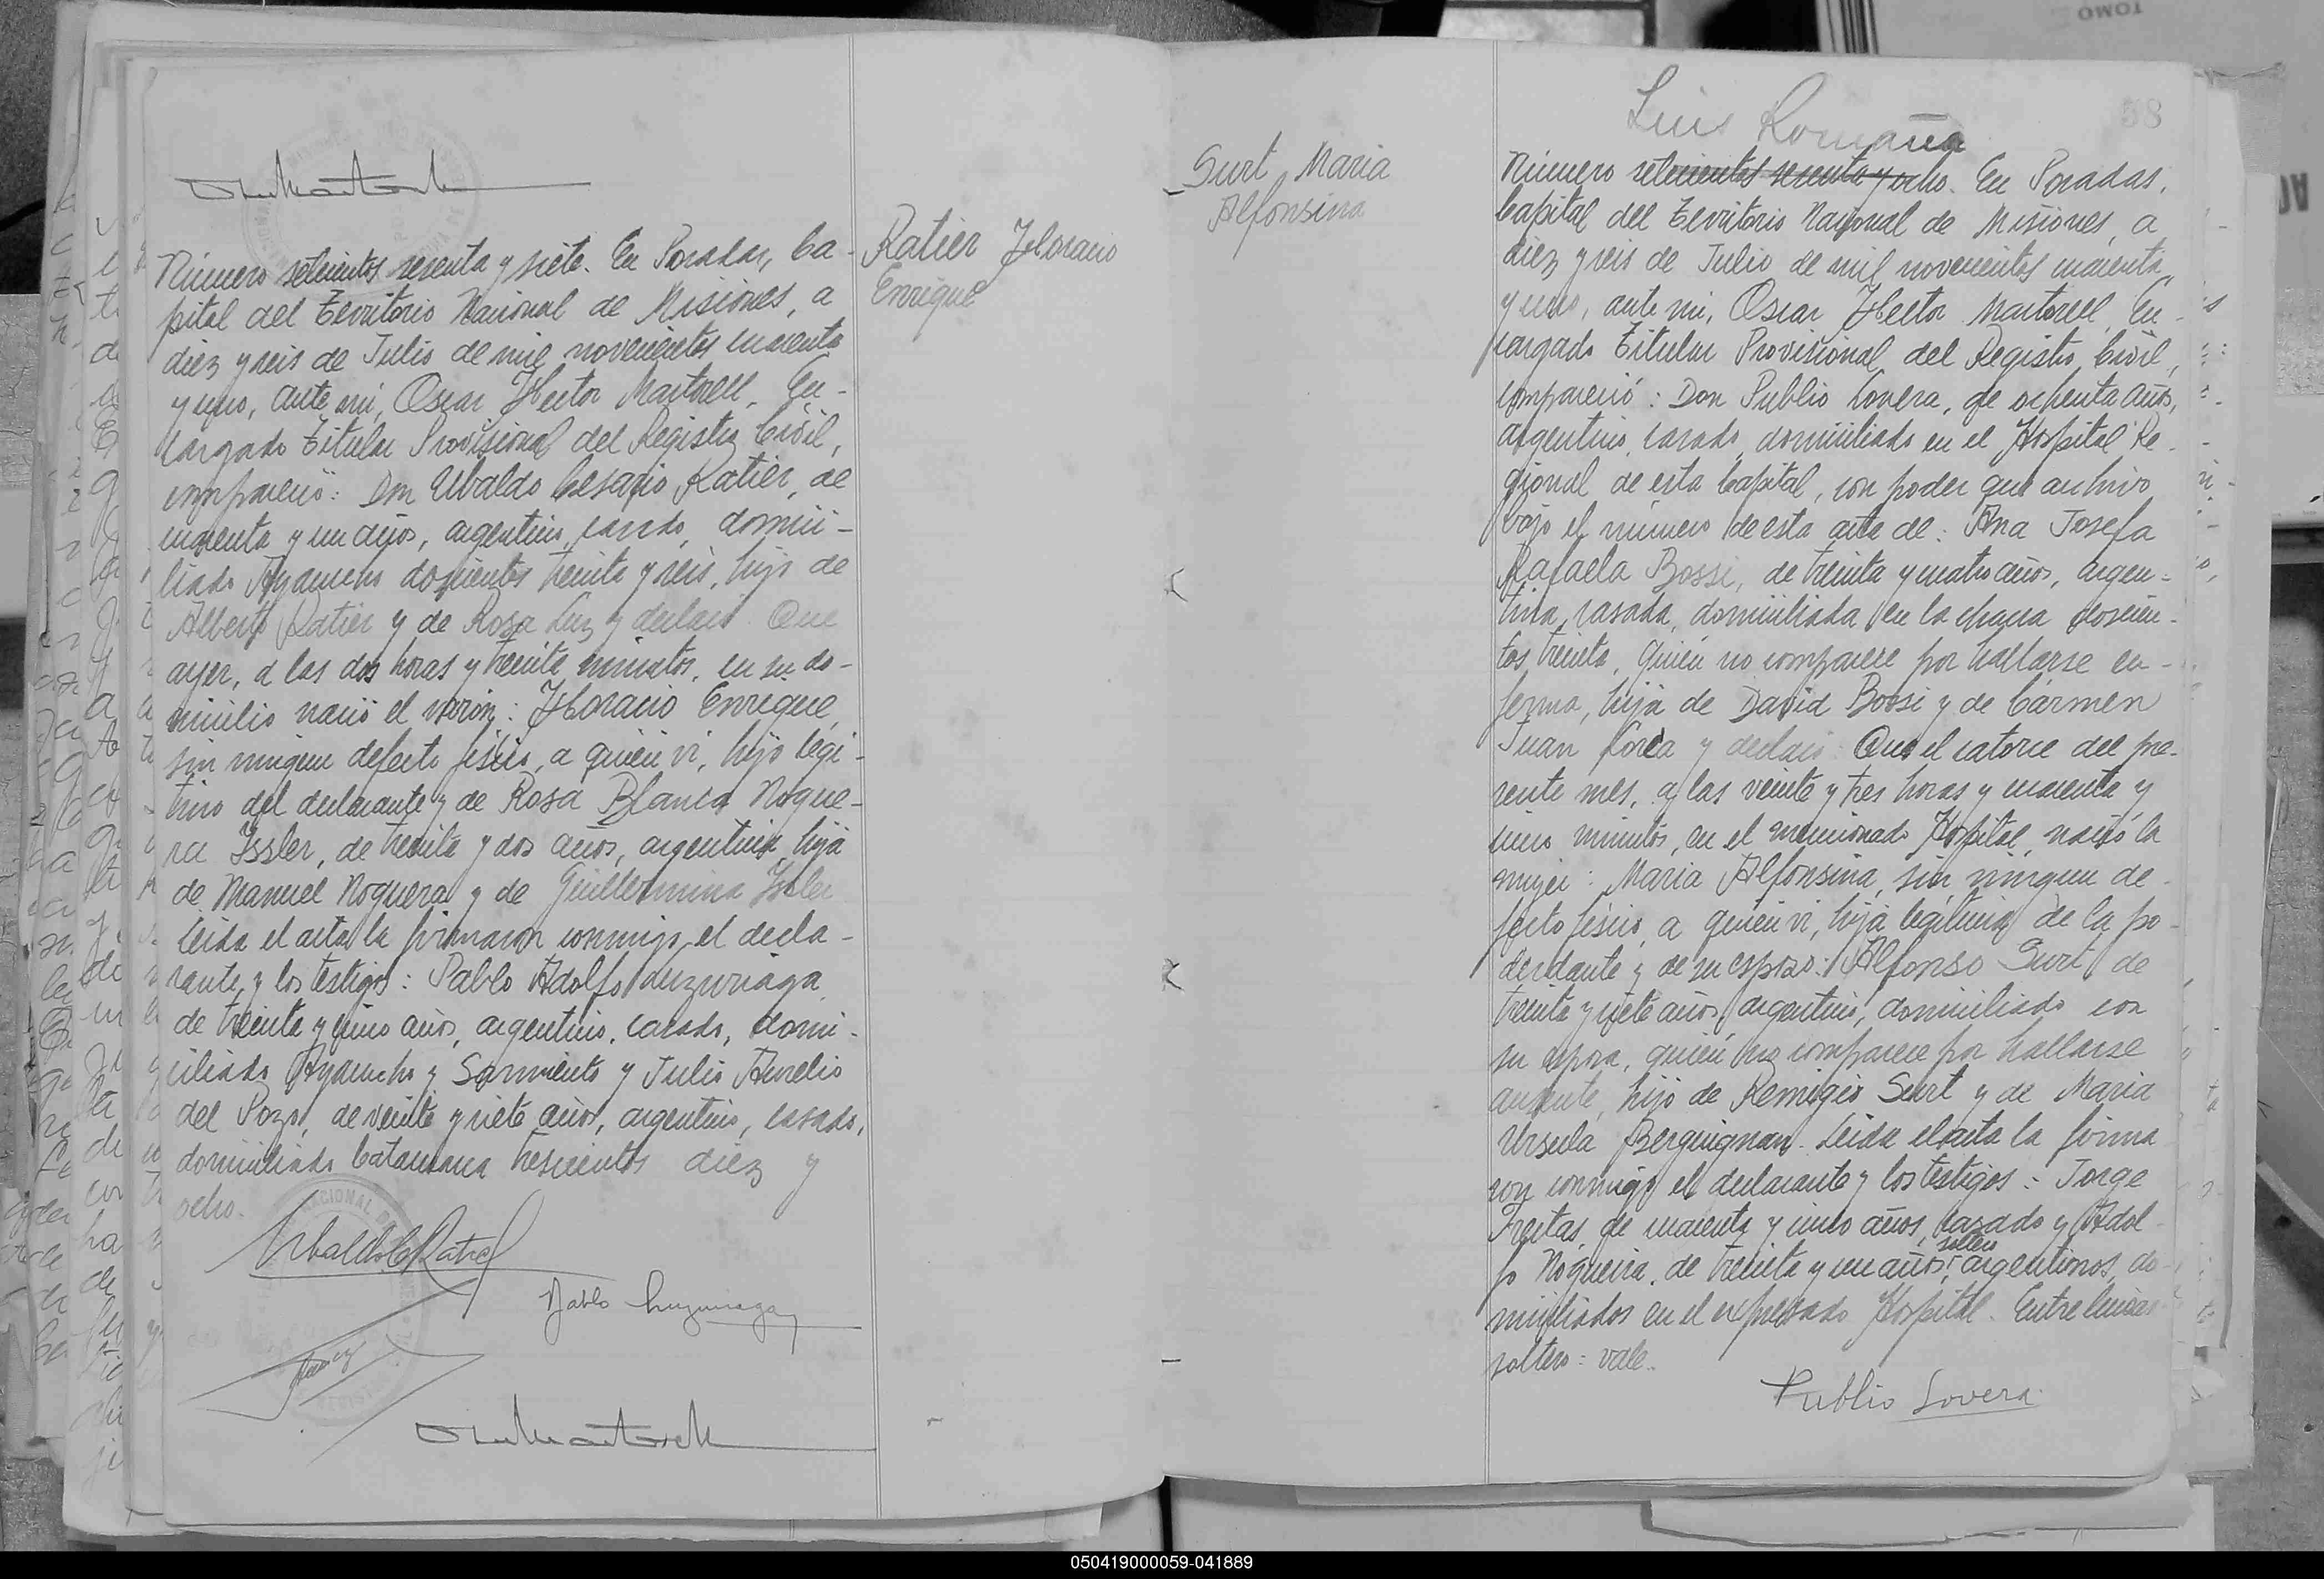 Número setecientos sesenta y siete. En Posadas, Ca-
pital del Territorio Nacional de Misiones, a
diez y seis de Julio de mil novecientos cuarenta
y uno, ante mi, Oscar Hector Martorell, En-
cargado Titular Provisional del Registro Civil,
compareció: Don Ubaldo Cesario Ratier, de
cuarenta y un años, argentino, casado, domici-
liado Ayacucho doscientos treinta y seis, hijo de
Alberto Ratier y de Rosa Luz y declaró: Que
ayer, a las dos horas y treinta minutos, en su do-
micilio nació el varón: Horacio Enrique,
sin ningun defecto físico, a quien vi, hijo legi-
timo del declarante y de Rosa Blanca Nogue-
ra Issler, de treinta y dos años, argentina, hija
de Manuel Noguera y de Guillermina Issler
Leida el acta la firmaron conmigo, el decla-
rante, y los testigos: Pablo Adolfo Luzuriaga
de treinta y cinco años, argentino, casado, domi-
ciliado Ayacucho y Sarmiento y Julio Aurelio
del Pozo, de veinte y siete años, argentino, casado,
domiciliado Catamarca trescientos diez y
ocho.
Ubaldo C Ratier
Pablo Luzuriaga
Ratier Horacio
Enrique
Surt Maria
Alfonsina
Luis Romaña
58
Número setecientos sesenta y ocho. En Posadas,
Capital del Territorio Nacional de Misiones, a
diez y seis de Julio de mil novecientos cuarenta
y uno, ante mi, Oscar Hector Martorell, En-
cargado Titular Provisional del Registro Civil,
compareció: Don Publio Lovera, de ochenta años,
argentino, casado, domiciliado en el Hospital Re-
gional de esta Capital, con poder que archivo
bajo el número de esta acta de: Ana Josefa
Rafaela Bossi, de treinta y cuatro años, argen-
tina, casada, domiciliada en la chacra doscien-
tos treinta, quien no comparece por hallarse en-
ferma, hija de David Bossi y de Cármen
Juan y declaró: Que el catorce del pre-
sente mes, a las veinte y tres horas y cuarenta y
cinco minutos, en el mencionado Hospital, nació la
mujer: Maria Alfonsina, sin ningun de-
fecto físico, a quien vi, hija legítima de la po-
derdante y de su esposo: Alfonso Surt, de
treinta y siete años, argentino, domiciliado con
su esposa, quien no comparece por hallarse
ausente, hijo de Remigio Surt y de Maria
Ursula Berguignan. Leida el acta la firma
ron conmigo el declarante y los testigos: Jorge
Freitas, de cuarenta y cinco años, casado y Adol-
soltero
fo Nogueira, de treinta y un años, argentinos, do-
miciliados en el expresado Hospital. Entre lineas
soltero: vale.
Publio Lovera
TOMO
050419000059-041889